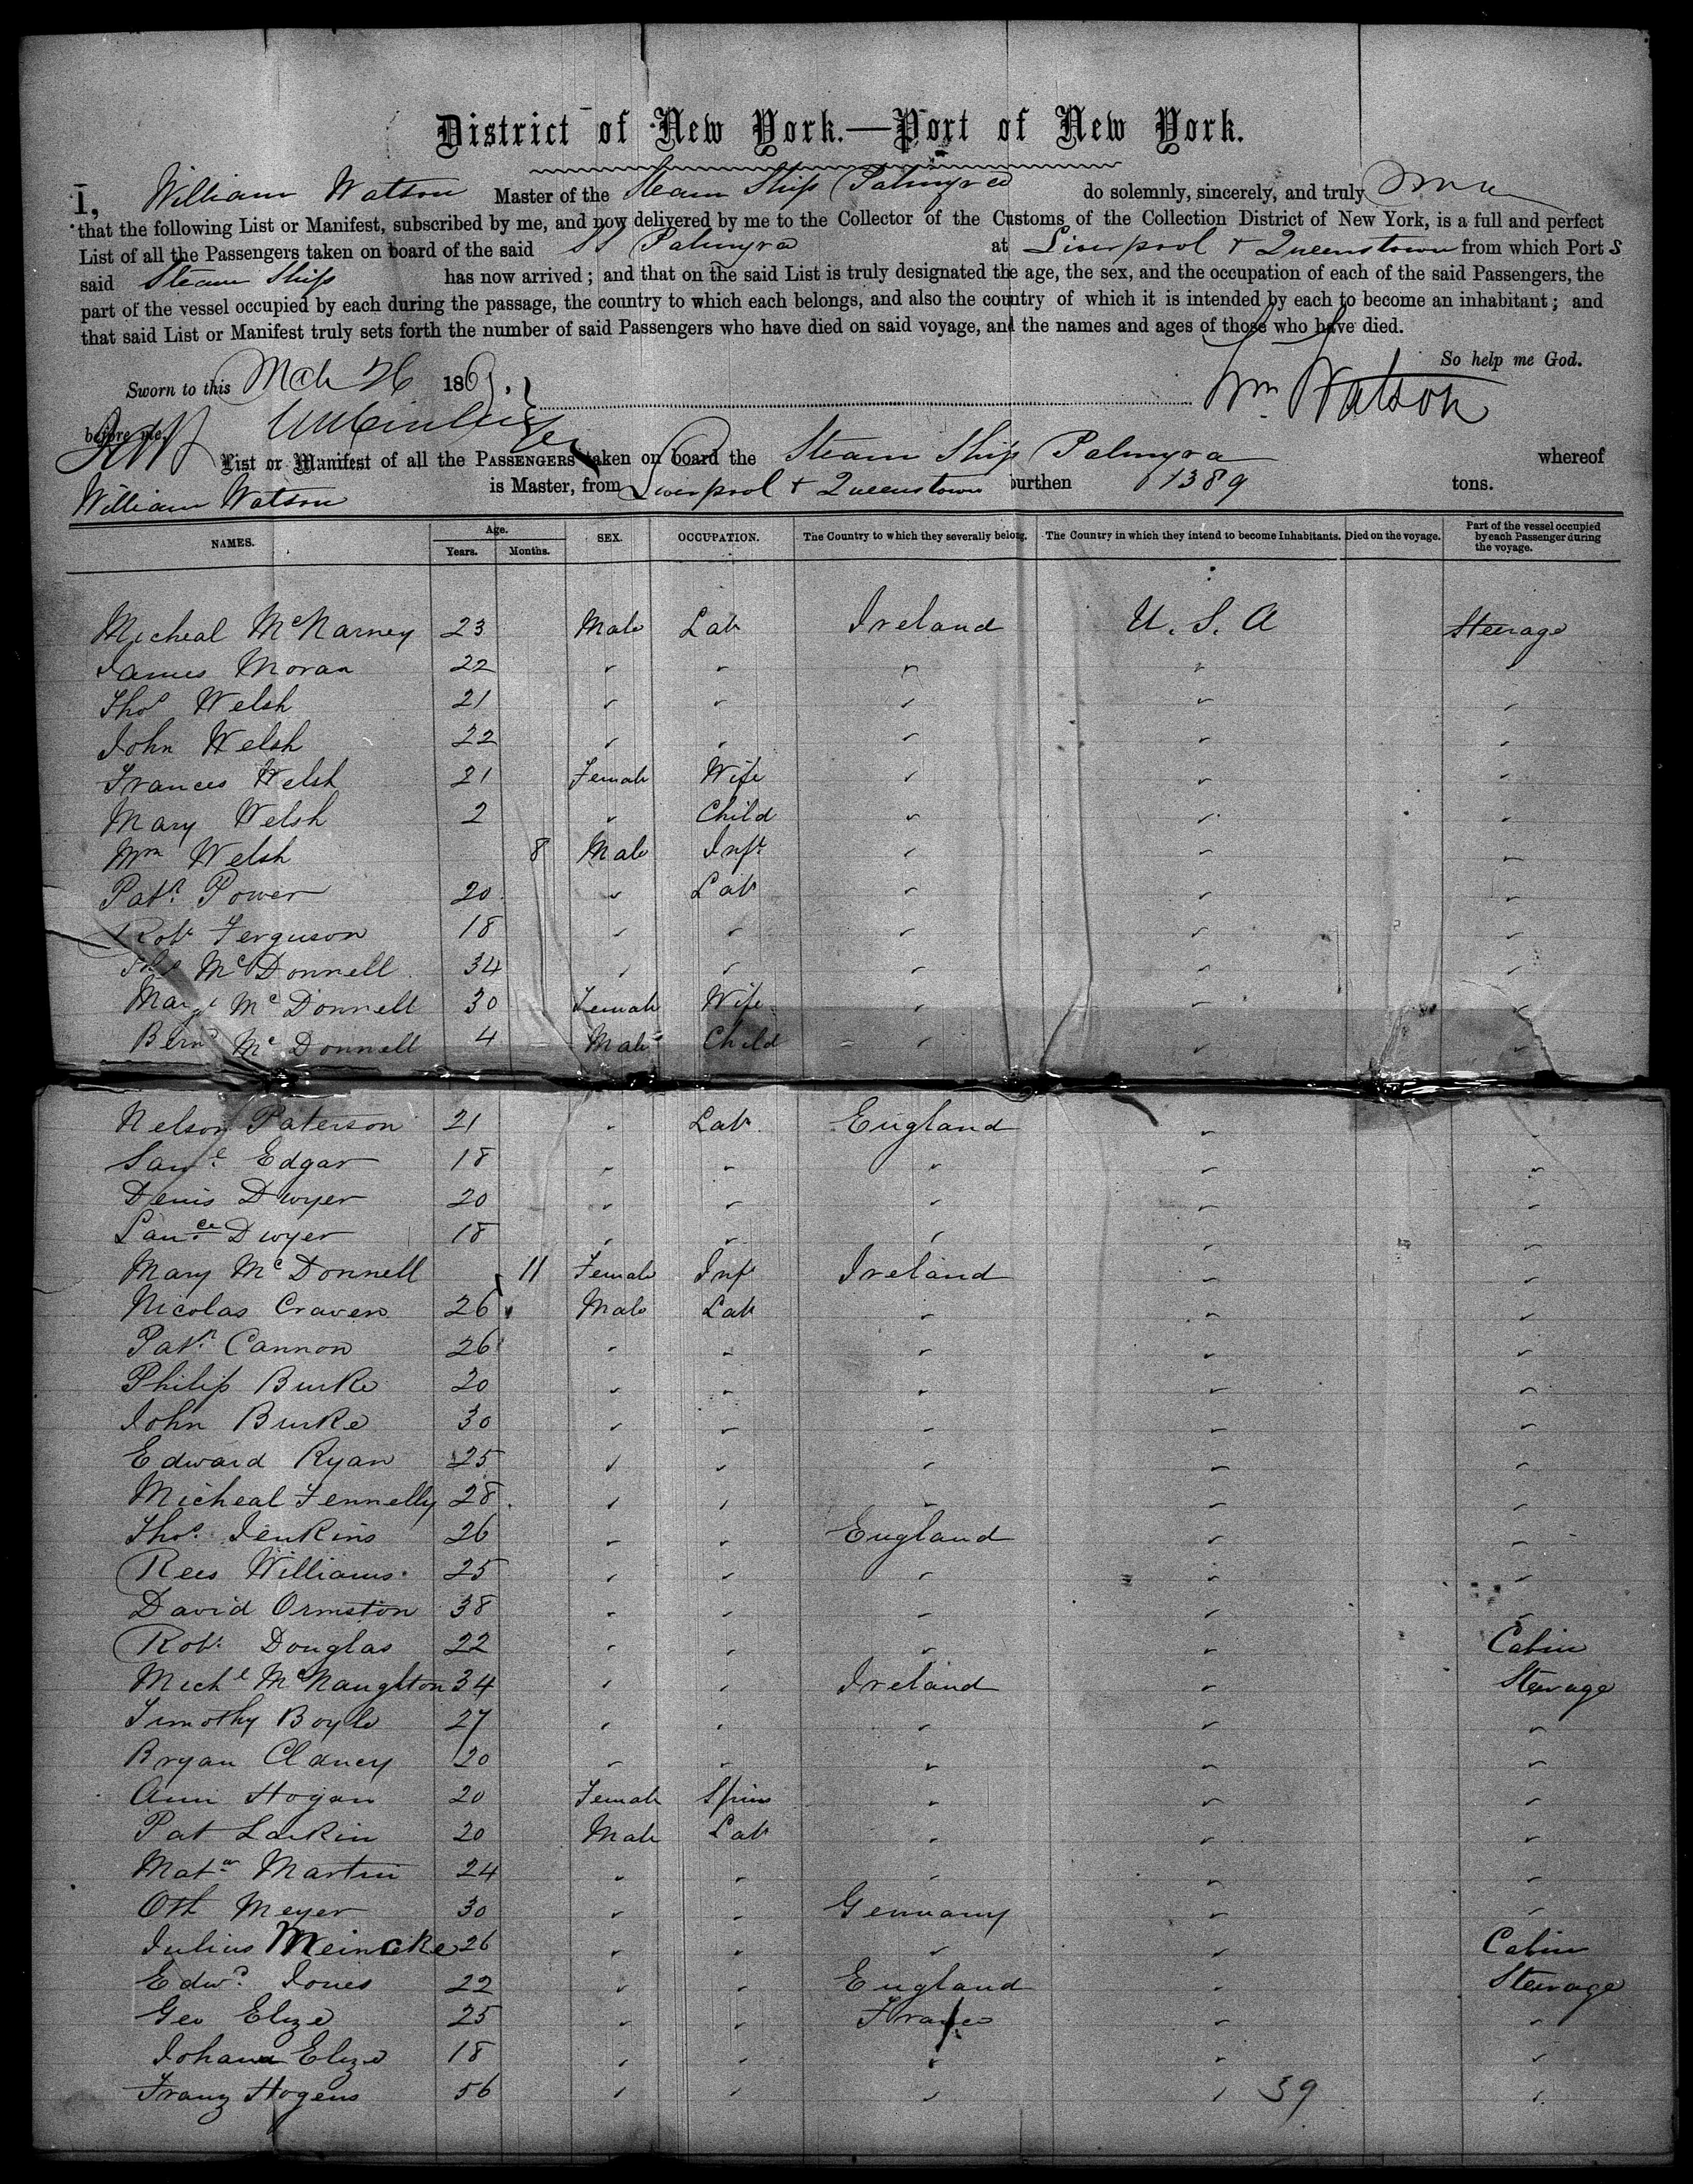 District of New York.—Port of New York.
I, William Watson Master of the Steam Ship Palmyra do solemnly, sincerely, and truly
that the following List or Manifest, subscribed by me, and now delivered by me to the Collector of the Customs of the Collection District of New York, is a full and perfect
List of all the Passengers taken on board of the said SS Palmyra at Liverpool + Queenstown from which Port S
said Steam Ship has now arrived; and that on the said List is truly designated the age, the sex, and the occupation of each of the said Passengers, the
part of the vessel occupied by each during the passage, the country to which each belongs, and also the country of which it is intended by each to become an inhabitant; and
that said List or Manifest truly sets forth the number of said Passengers who have died on said voyage, and the names and ages of those who have died.
So help me God.
Sworn to this Mch 26 186
Wm Watson
before me.
List or Manifest of all the PASSENGERS taken on board the Steam Ship Palmyra whereof
William Watson is Master, from Liverpool + Queenstown burthen 1389 tons.
NAMES. Age. Years. Months. SEX. OCCUPATION. The Country to which they severally belong. The Country in which they intend to become Inhabitants. Died on the voyage. Part of the vessel occupied by each Passenger during the voyage.
Micheal McNarney 23 Male Labr Ireland U.S.A Steerage
James Moran 22 " " " " "
Thos Welsh 21 " " " " "
John Welsh 22 " " " " "
Frances Welsh 21 Female Wife " " "
Mary Welsh 2 " Child " " "
Wm Welsh 8 Male Inft " " "
Patk Power 20 " Labr " " "
Robt Ferguson 18 " " " " "
Thos McDonnell 34 " " " " "
Margt McDonnell 30 Female Wife " " "
Bernd McDonnell 4 Male Child " " "
Nelson Paterson 21 " Labr England " "
Saml Edgar 18 " " " " "
Denis Dwyer 20 " " " " "
Launce Dwyer 18 " " " " "
Mary McDonnell 11 Female Inft Ireland " "
Nicolas Craven 26 Male Labr " " "
Patk Cannon 26 " " " " "
Philip Burke 20 " " " " "
John Burke 30 " " " " "
Edward Ryan 25 " " " " "
Micheal Fennelly 28 " " " " "
Thos Jenkins 26 " " England " "
Rees Williams 25 " " " " "
David Ormston 38 " " " " "
Robt Douglas 22 " " " " Cabin
Michl McNaughton 34 " " Ireland " Steerage
Timothy Boyle 27 " " " " "
Bryan Clancy 20 " " " " "
Ann Hogan 20 Female Spins " " "
Pat Larkin 20 Male Labr " " "
Matw Martin 24 " " " " "
Ott Meyer 30 " " Germany " "
Julius Meincke 26 " " " " Cabin
Edwd Jones 22 " " England " Steerage
Geo Elize 25 " " France " "
Johann Elize 18 " " " " "
Franz Hogens 56 " " " " "
39